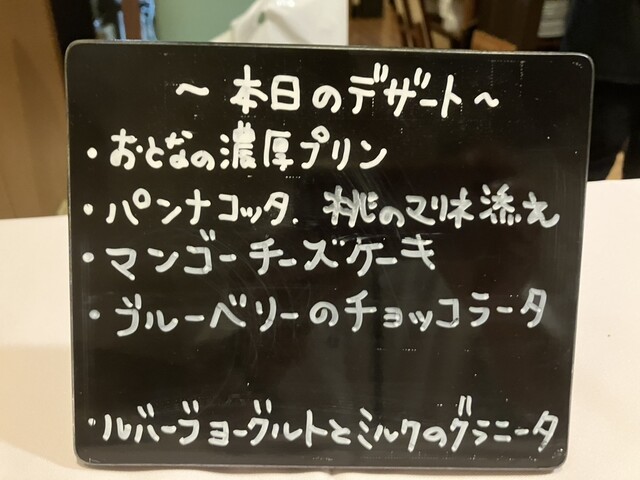 ～本日のデザート～
・おとなの濃厚プリン
・パンナコッタ. 桃のマリネ添え
・マンゴーチーズケーキ
・ブルーベリーのチョッコラータ
・ルバーブヨーグルトとミルクのグラニータ